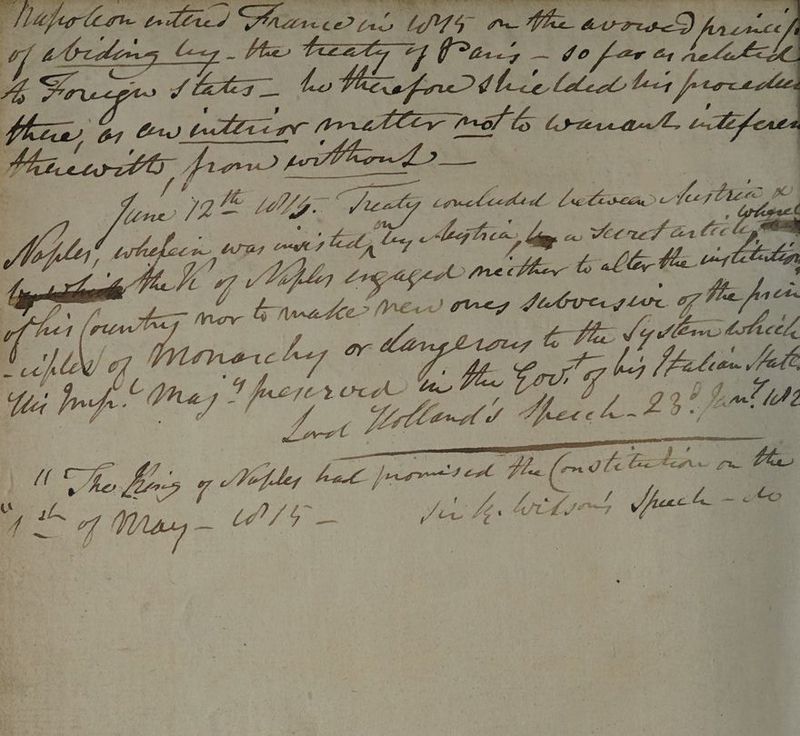 Napoleon entered France in 1815 on the avowed princip
of abiding by - the treaty of Paris - so far as related
to Foreign States - he therefore shielded his procedur
there, as an interior matter not to warrant inteferen
therewith, from without -
June 12th 1815. Treaty concluded between Austria &
Naples, wherein was insisted, on by Austria, by a secret article, whereby
by which the K of Naples engaged neither to alter the institution
of his Country nor to make new ones subversive of the prin
-ciples of Monarchy or dangerous to the System which
His Imp.l Maj.y preserved in the Gov.t of his Italian State
Lord Holland's Speech - 23d. Jany. 182
" The King of Naples had promised the Constitution on the
" 1st of May - 1815 - Sir R. Wilson's Speech - do